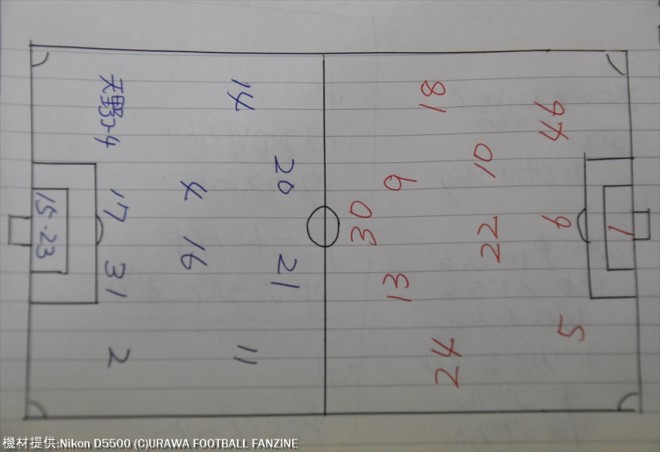 1
5 6 46
22 10
24 18
13 9
30
20 21
14 11
4 16
天野 17 31 2
15.23
機材提供:Nikon D5500 (C)URAWA FOOTBALL FANZINE